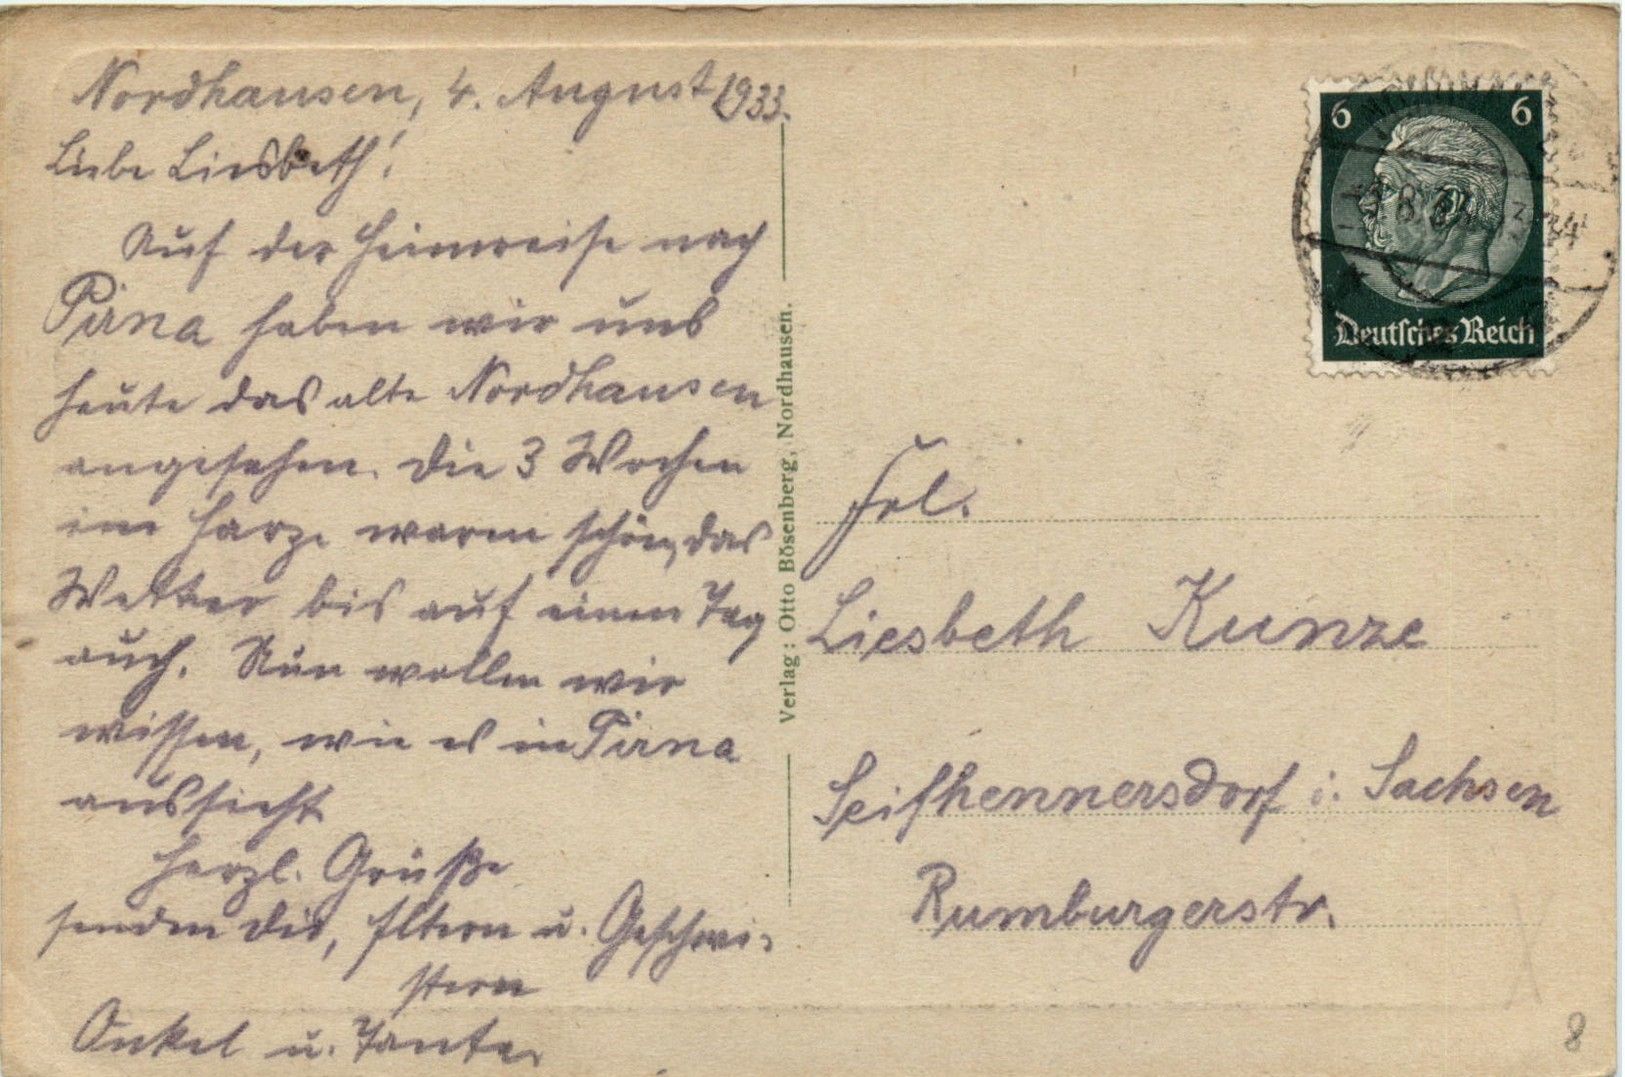 Nordhausen, 4. August 1933.
Liebe Liesbeth!
Auf der Heimreise nach
Pirna haben wir uns
heute das alte Nordhausen
angesehen. Die 3 Wochen
im Harze waren schön, das
Wetter bis auf einen Tag
auch. Nun wollen wir
wissen, wie es in Pirna
aussieht
Herzl. Grüße
senden Dir, Eltern u. Geschwi-
stern
Onkel u. Tante.
Verlag: Otto Bösenberg, Nordhausen.
6 6
Deutsches Reich
Frl.
Liesbeth Kunze
Seifhennersdorf i. Sachsen
Rumburgerstr.
8